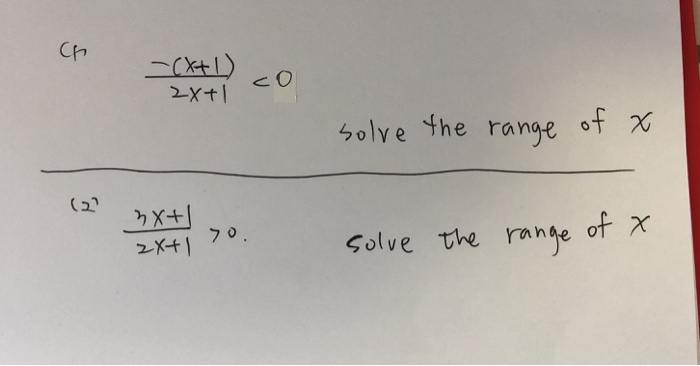 (1) -(x+1)/2x+1 <0
solve the range of x
(2) 3x+1/2x+1 >0.
solve the range of x